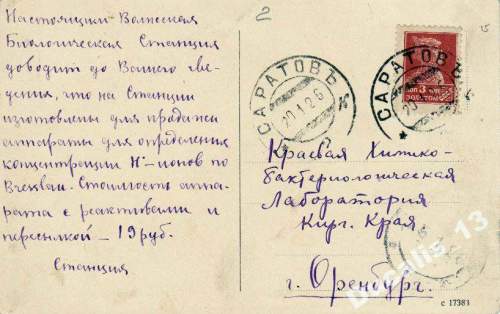 Настоящим Волжская
Биологическая Станция
доводит до Вашего све-
дения, что на Станции
изготовлены для продажи
аппараты для определения
концентрации H˙-ионов по
Стоимость аппа-
рата с реактивами и
пересылкой – 19 руб.
Станция
2
САРАТОВЪ
20.1.26
САРАТОВЪ
20
КОП 3 КОП
ЗОЛОТОМ
Краевая Химико-
бактериологическая
Лаборатория
Кирг. Края
г. Оренбург.
с 17383
Docalis 13